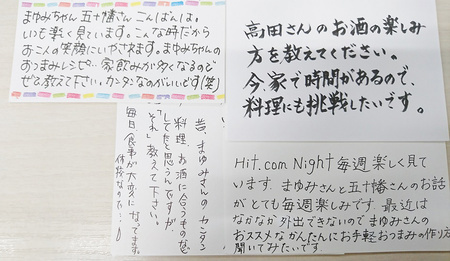 まゆみちゃん 五十幡さん こんばんは。
いつも楽しく見ています。こんな時だから
お二人の笑顔にいやされます。まゆみちゃんの
おつまみレシピ…家飲みが多くなるので
ぜひ教えて下さい。カンタンなのがいいです(笑)
高田さんのお酒の楽しみ
方を教えてください。
今、家で時間があるので、
料理にも挑戦したいです。
昔、まゆみさんのカンタン
料理、お酒に合うものなど
してたと思うんですが、
「それ」教えて下さい。
毎日、食事が大変になってます。
休校なので…
Hit.com Night 毎週楽しく見て
います. まゆみさんと五十幡さんのお話
がとても毎週楽しみです. 最近は
なかなか外出できないので まゆみさんの
おススメなかんたんにお手軽おつまみの作り方
聞いてみたいです